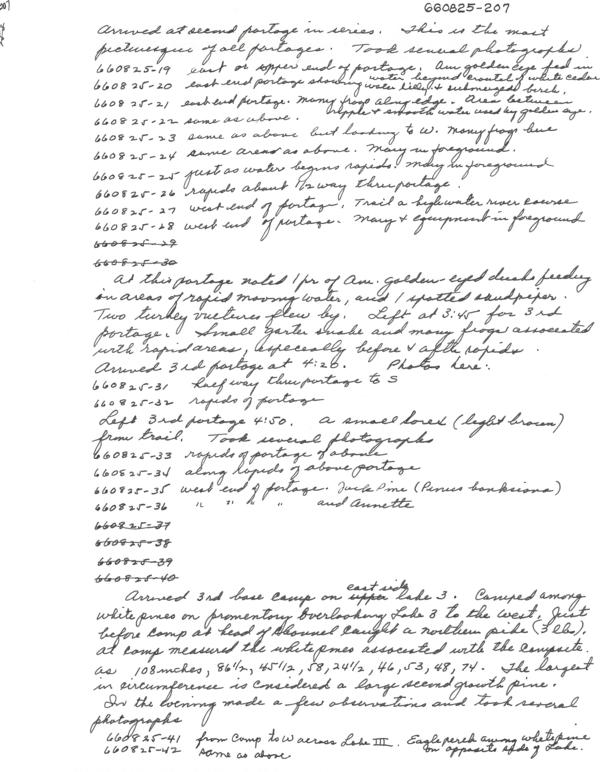 660825-207
Arrived at second portage in series. This is the most
picturesque of all portages. Took several photographs
660825-19 east or upper end of portage. Am golden eye fed in
water beyond crowtal of white cedar
660825-20 east end portage showing water lilies & submerged birch.
660825-21 east end portage. many frogs along edge. Area between
ripple & smooth water used by golden eye.
660825-22 same as above.
660825-23 same as above but looking to W. Many frogs here
660825-24 same area as above. Mary in foreground.
660825-25 just as water begins rapids. Mary in foreground
660825-26 rapids about 1/2 way thru portage.
660825-27 west end of portage. Trail a highwater river course
660825-28 west end of portage. Mary & equipment in foreground
660825-29
660825-30
At this portage noted 1 pr of Am. golden-eyed ducks feeding
in areas of rapid moving water, and 1 spotted sandpiper.
Two turkey vultures flew by. Left at 3:45 for 3rd
portage. Small garter snake and many frogs associated
with rapid areas, especially before & after rapids.
Arrived 3rd portage at 4:20. Photos here:
660825-31 half way thru portage to S
660825-32 rapids of portage
Left 3rd portage 4:50. A small Sorex (light brown)
from trail. Took several photographs
660825-33 rapids of portage of above
660825-34 along rapids of above portage
660825-35 west end of portage. Jack Pine (Pinus banksiana)
660825-36 " " " " and Annette
660825-37
660825-38
660825-39
660825-40
east side
Arrived 3rd base camp on upper Lake 3. Camped among
white pines on promontory overlooking Lake 3 to the west. Just
before camp at head of channel caught a northern pike (3 lbs).
at camp measured the white pines associated with the campsite.
as 108 inches, 86 1/2, 45 1/2, 58, 24 1/2, 46, 53, 48, 74. The largest
in circumference is considered a large second growth pine.
In the evening made a few observations and took several
photographs
660825-41 from Camp to W across Lake III. Eagle perch among white pine
on opposite side of Lake.
660825-42 same as above